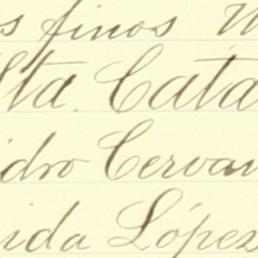 s finos
lta. Cata
idro Cervan
nida López